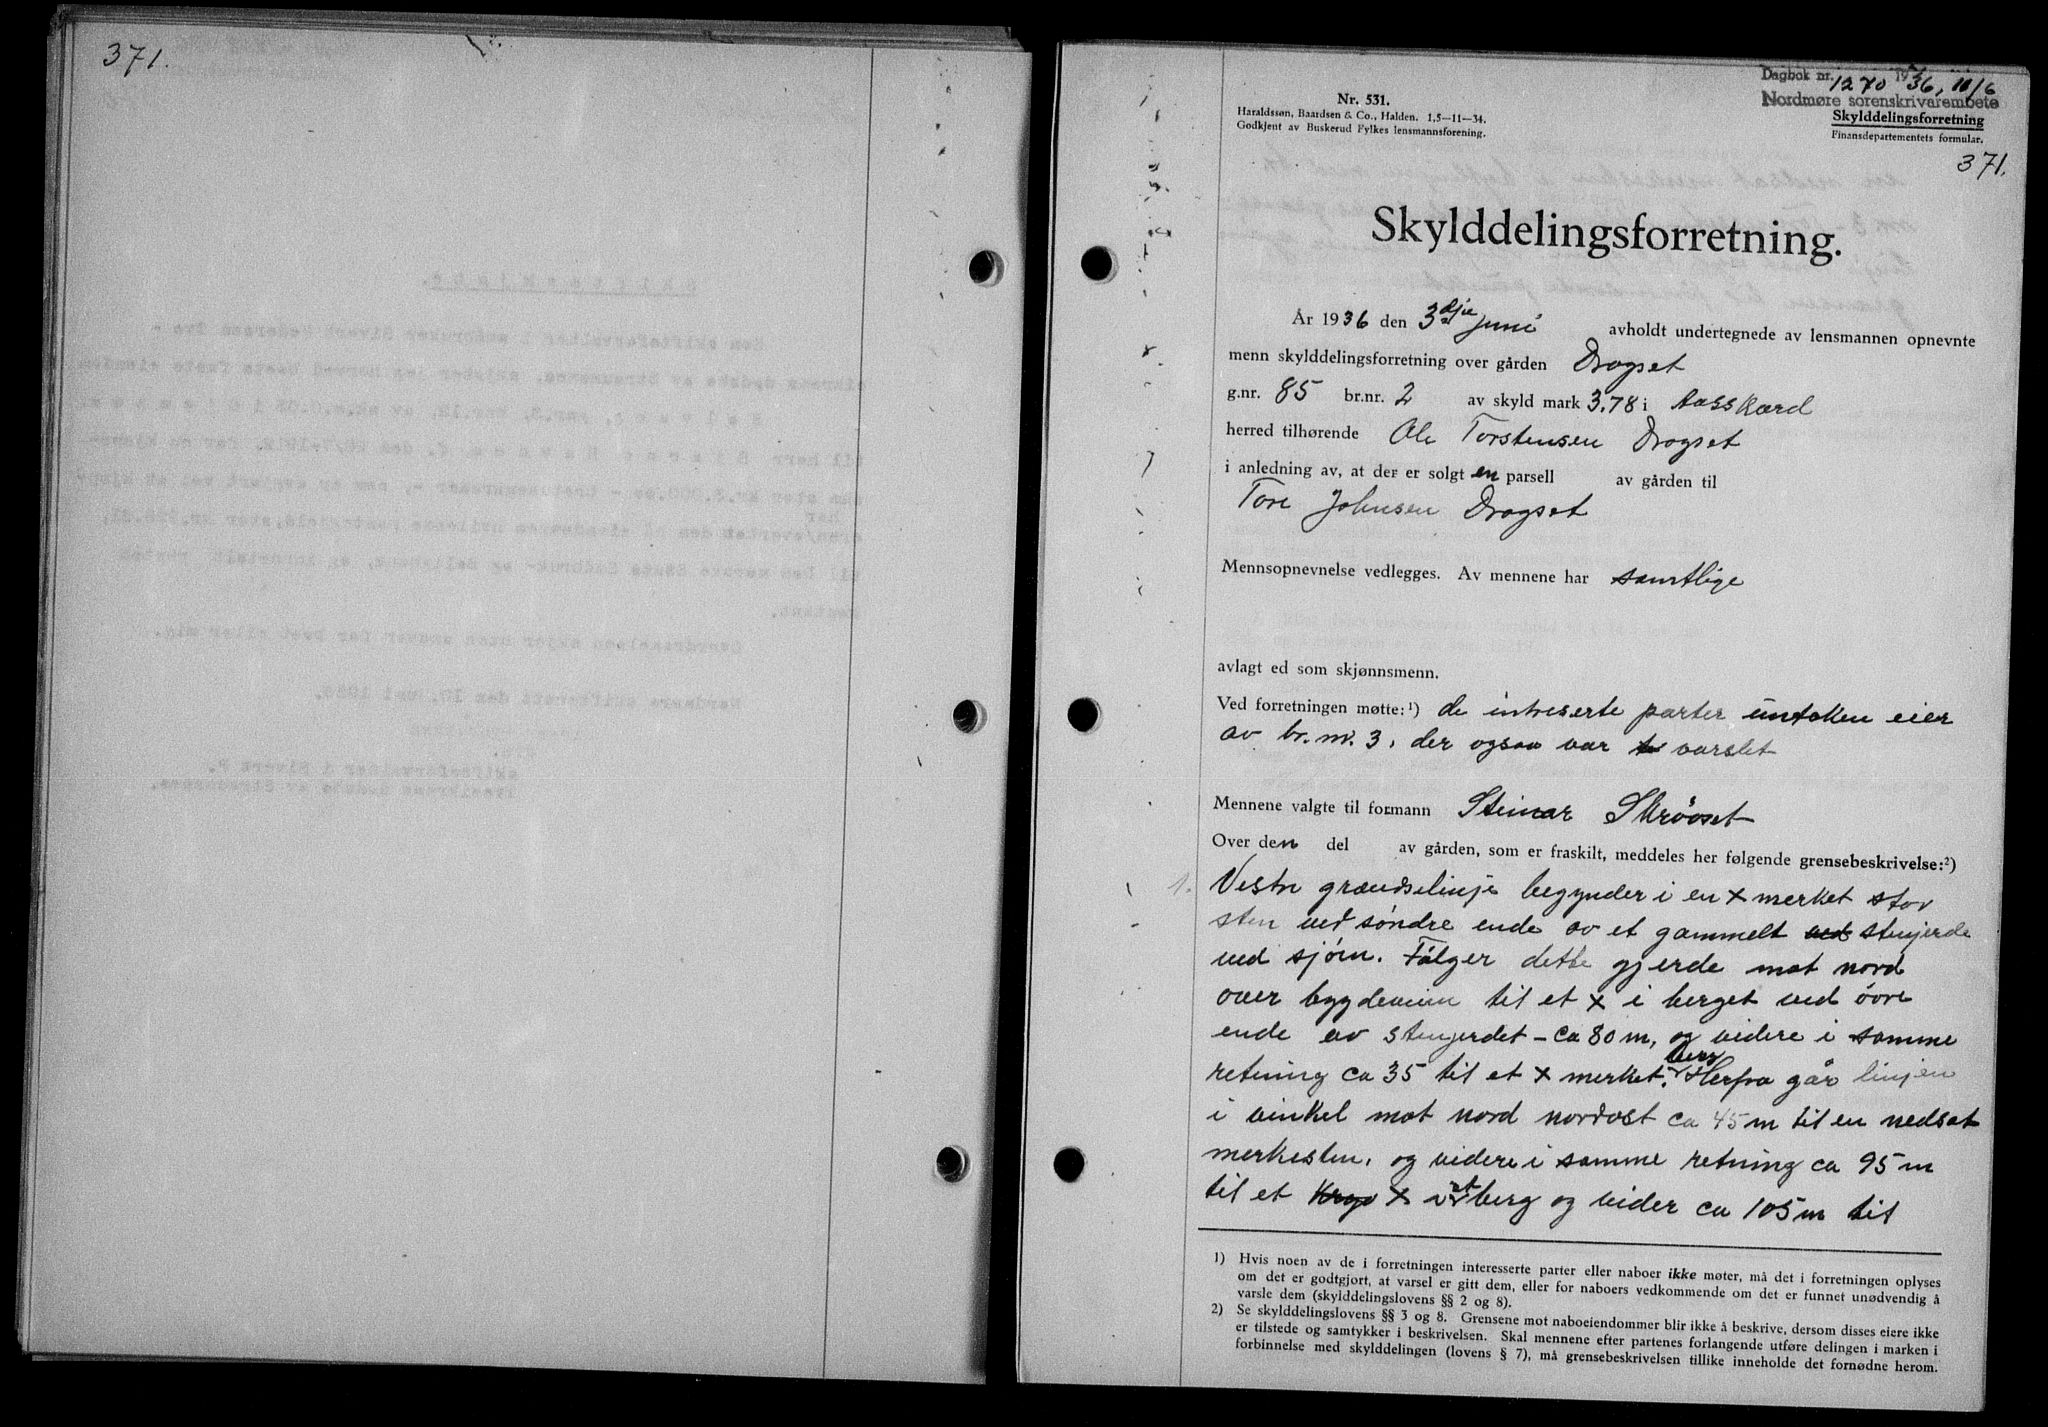 371.
Dagbok nr. 1270 1936, 10/6
Nordmøre sorenskrivarembete
Nr. 531.
Haraldssøn, Baardsen & Co., Halden. 1,5—11—34.
Godkjent av Buskerud Fylkes lensmannsforening.
Skylddelingsforretning
Finansdepartementets formular.
371.
Skylddelingsforretning.
År 1936 den 3dje juni avholdt undertegnede av lensmannen opnevnte
menn skylddelingsforretning over gården Drogset
g.nr. 85 br.nr. 2 av skyld mark 3,78 i Aasskard
herred tilhørende Ole Torstensen Drogset
i anledning av, at der er solgt en parsell av gården til
Tore Johnsen Drogset
Mennsopnevnelse vedlegges. Av mennene har samtlige
avlagt ed som skjønnsmenn.
Ved forretningen møtte:¹) de intreserte parter untaken eier
av br.nr. 3, der ogsaa var varslet
Mennene valgte til formann Steinar Skrøvset
Over den del av gården, som er fraskilt, meddeles her følgende grensebeskrivelse:²)
1. Vestre grændselinje begynder i en x merket stor
sten ved søndre ende av et gammelt ved stenjerde
ved sjøen. Følger dette gjerde mot nord
over bygdeveien til et x i berget ved øvre
ende av stenjerdet – ca 80 m, og videre i samme
retning ca 35 til et x merket berg. Herfra går linjen
i vinkel mot nord nordost ca 45 m til en nedsat
merkesten, og videre i samme retning ca 95 m
til et x berg og vider ca 105 m til
1) Hvis noen av de i forretningen interesserte parter eller naboer ikke møter, må det i forretningen oplyses
om det er godtgjort, at varsel er gitt dem, eller for naboers vedkommende om det er funnet unødvendig å
varsle dem (skylddelingslovens §§ 2 og 8).
2) Se skylddelingslovens §§ 3 og 8. Grensene mot naboeiendommer blir ikke å beskrive, dersom disses eiere ikke
er tilstede og samtykker i beskrivelsen. Skal mennene efter partenes forlangende utføre delingen i marken i
forbinnelse med skylddelingen (lovens § 7), må grensebeskrivelsen tillike inneholde det fornødne herom.